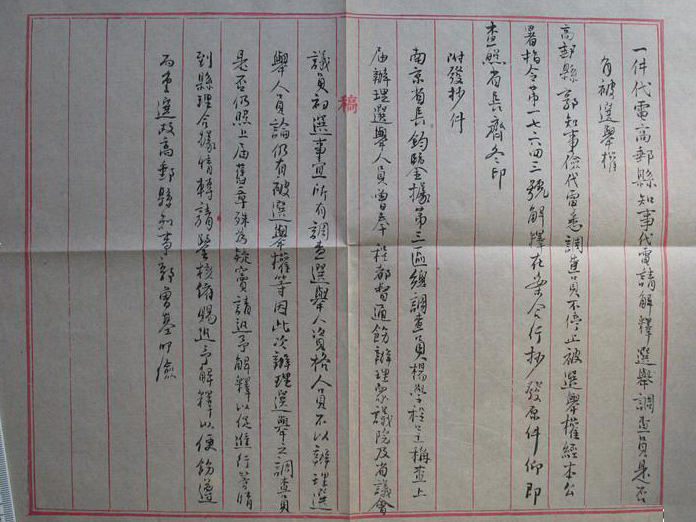 一件代電高郵縣知事代電請解釋選舉調查員是否
有被選舉權
高郵縣郭知事儉代電悉調查員不停止被選舉權經本公
署指令第一七六四三號解釋在案合行抄發原件仰即
查照省長齊冬印
附發抄件
稿
南京省長鈞鑒據第三區總調查員楊學程呈稱查上
屆辦理選舉人員曾奉 程都督通飭辦理眾議院及省議會
議員初選事宜所有調查選舉人資格人員不以辦理選
舉人員論仍有被選舉權等因此次辦理選舉之調查員
是否仍照上屆舊章殊為疑竇請迅予解釋以促進行等情
到縣理合據情轉請鑒核俯賜迅予解釋以便飭遵
而重選政高郵縣知事郭曾基叩儉